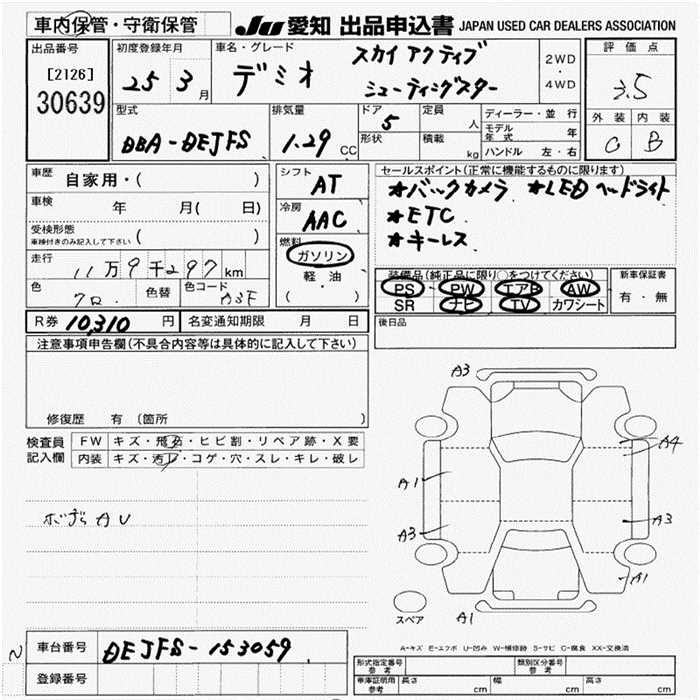 車内保管・守衛保管
JU 愛知 出品申込書 JAPAN USED CAR DEALERS ASSOCIATION
出品番号
[2126]
30639
初度登録年月
25 3月
車名・グレード
デミオ
スカイアクティブ
シューティングスター
2WD
・
4WD
評価点
3.5
外装 内装
C B
型式
DBA-DEJFS
排気量
1.29 CC
ドア
5
形状
定員
人
積載
kg
ディーラー・並行
モデル年式 年
ハンドル 左・右
車歴
自家用・( )
車検
年 月( 日)
受検形態
車検付きのみ記入して下さい ( )
走行
11万9千297km
色
色替
色コード
A3F
シフト
AT
冷房
AAC
燃料
ガソリン
軽・油
( ・ )
セールスポイント(正常に機能するものに限ります)
*バックカメラ *LEDヘッドライト
*ETC
*キーレス
装備品(純正品に限り○をつけてください)
PS PW エアB AW
SR ナビ TV カワシート
新車保証書
有・無
R券 10,310 円
名変通知期限 月 日
後日品
注意事項申告欄(不具合内容等は具体的に記入して下さい)
修復歴 有 (箇所 )
検査員
記入欄
FW キズ・飛石・ヒビ割・リペア跡・X要
内装 キズ・汚れ・コゲ・穴・スレ・キレ・破レ
AU
A3
A4
A1
A3
A3
A1
A1
スペア
A-キズ E-エクボ U-凹み W-補修跡 S-サビ C-腐食 XX-交換済
車台番号
DEJFS-153059
登録番号
形式指定番号
参考
類別区分番号
参考
車庫証明用
参考
長さ cm 幅 cm 高さ cm